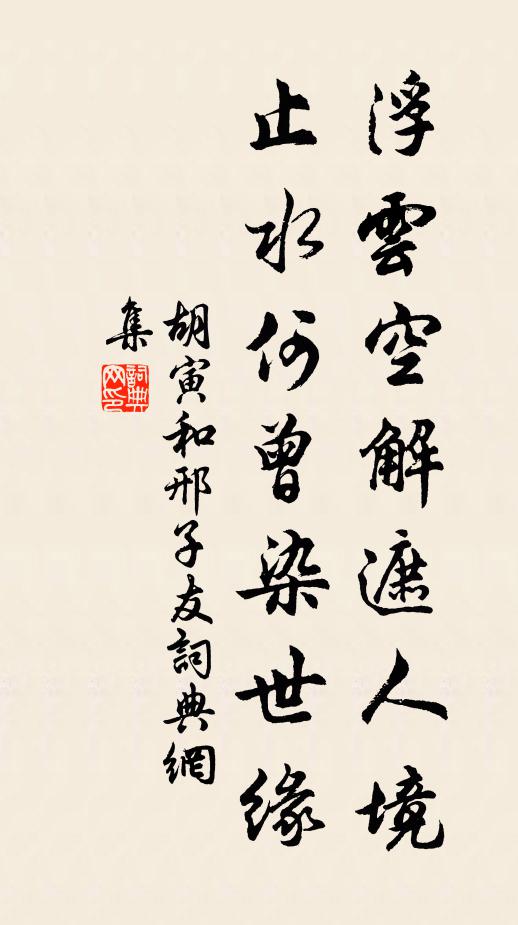 浮雲空解遮人境
止水何曾染世緣
胡寅和邢子友詞典網
集
詞典
网印